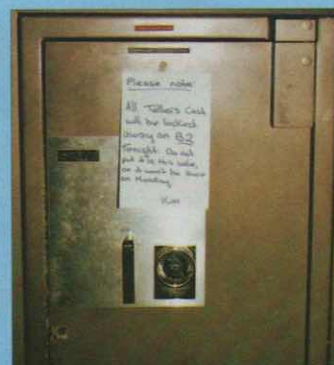 Please note:
All Tellers Cash
will be locked
away on B2
Tonight. Do not
put it in this safe,
or it won't be there
on Monday
Kim